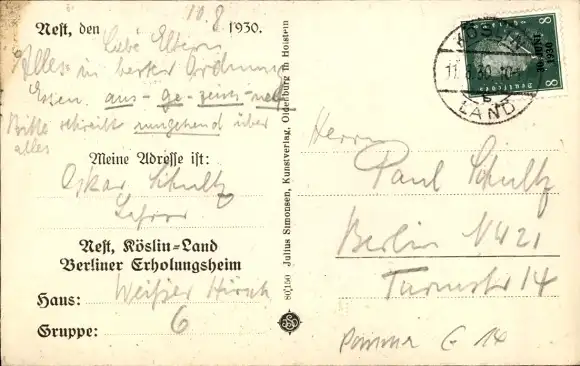 Nest, den 10.8 1930.
Liebe Eltern
Alles in bester Ordnung
Essen aus-ge-zeich-net
Bitte schreibt umgehend über
alles
Meine Adresse ist:
Oskar Schultz
Nest, Köslin=Land
Berliner Erholungsheim
Haus: Weißer Hirsch
Gruppe: 6
80/150 Julius Simonsen, Kunstverlag, Oldenburg in Holstein
KÖSLIN
LAND
8 8
30. JUNI
1930
Herrn
Paul Schultz
Berlin NW 21
Turmstr 14